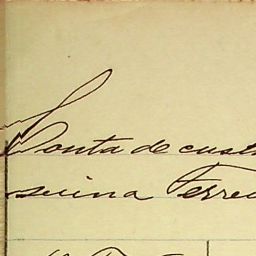 Conta de cust
suina Ferrei